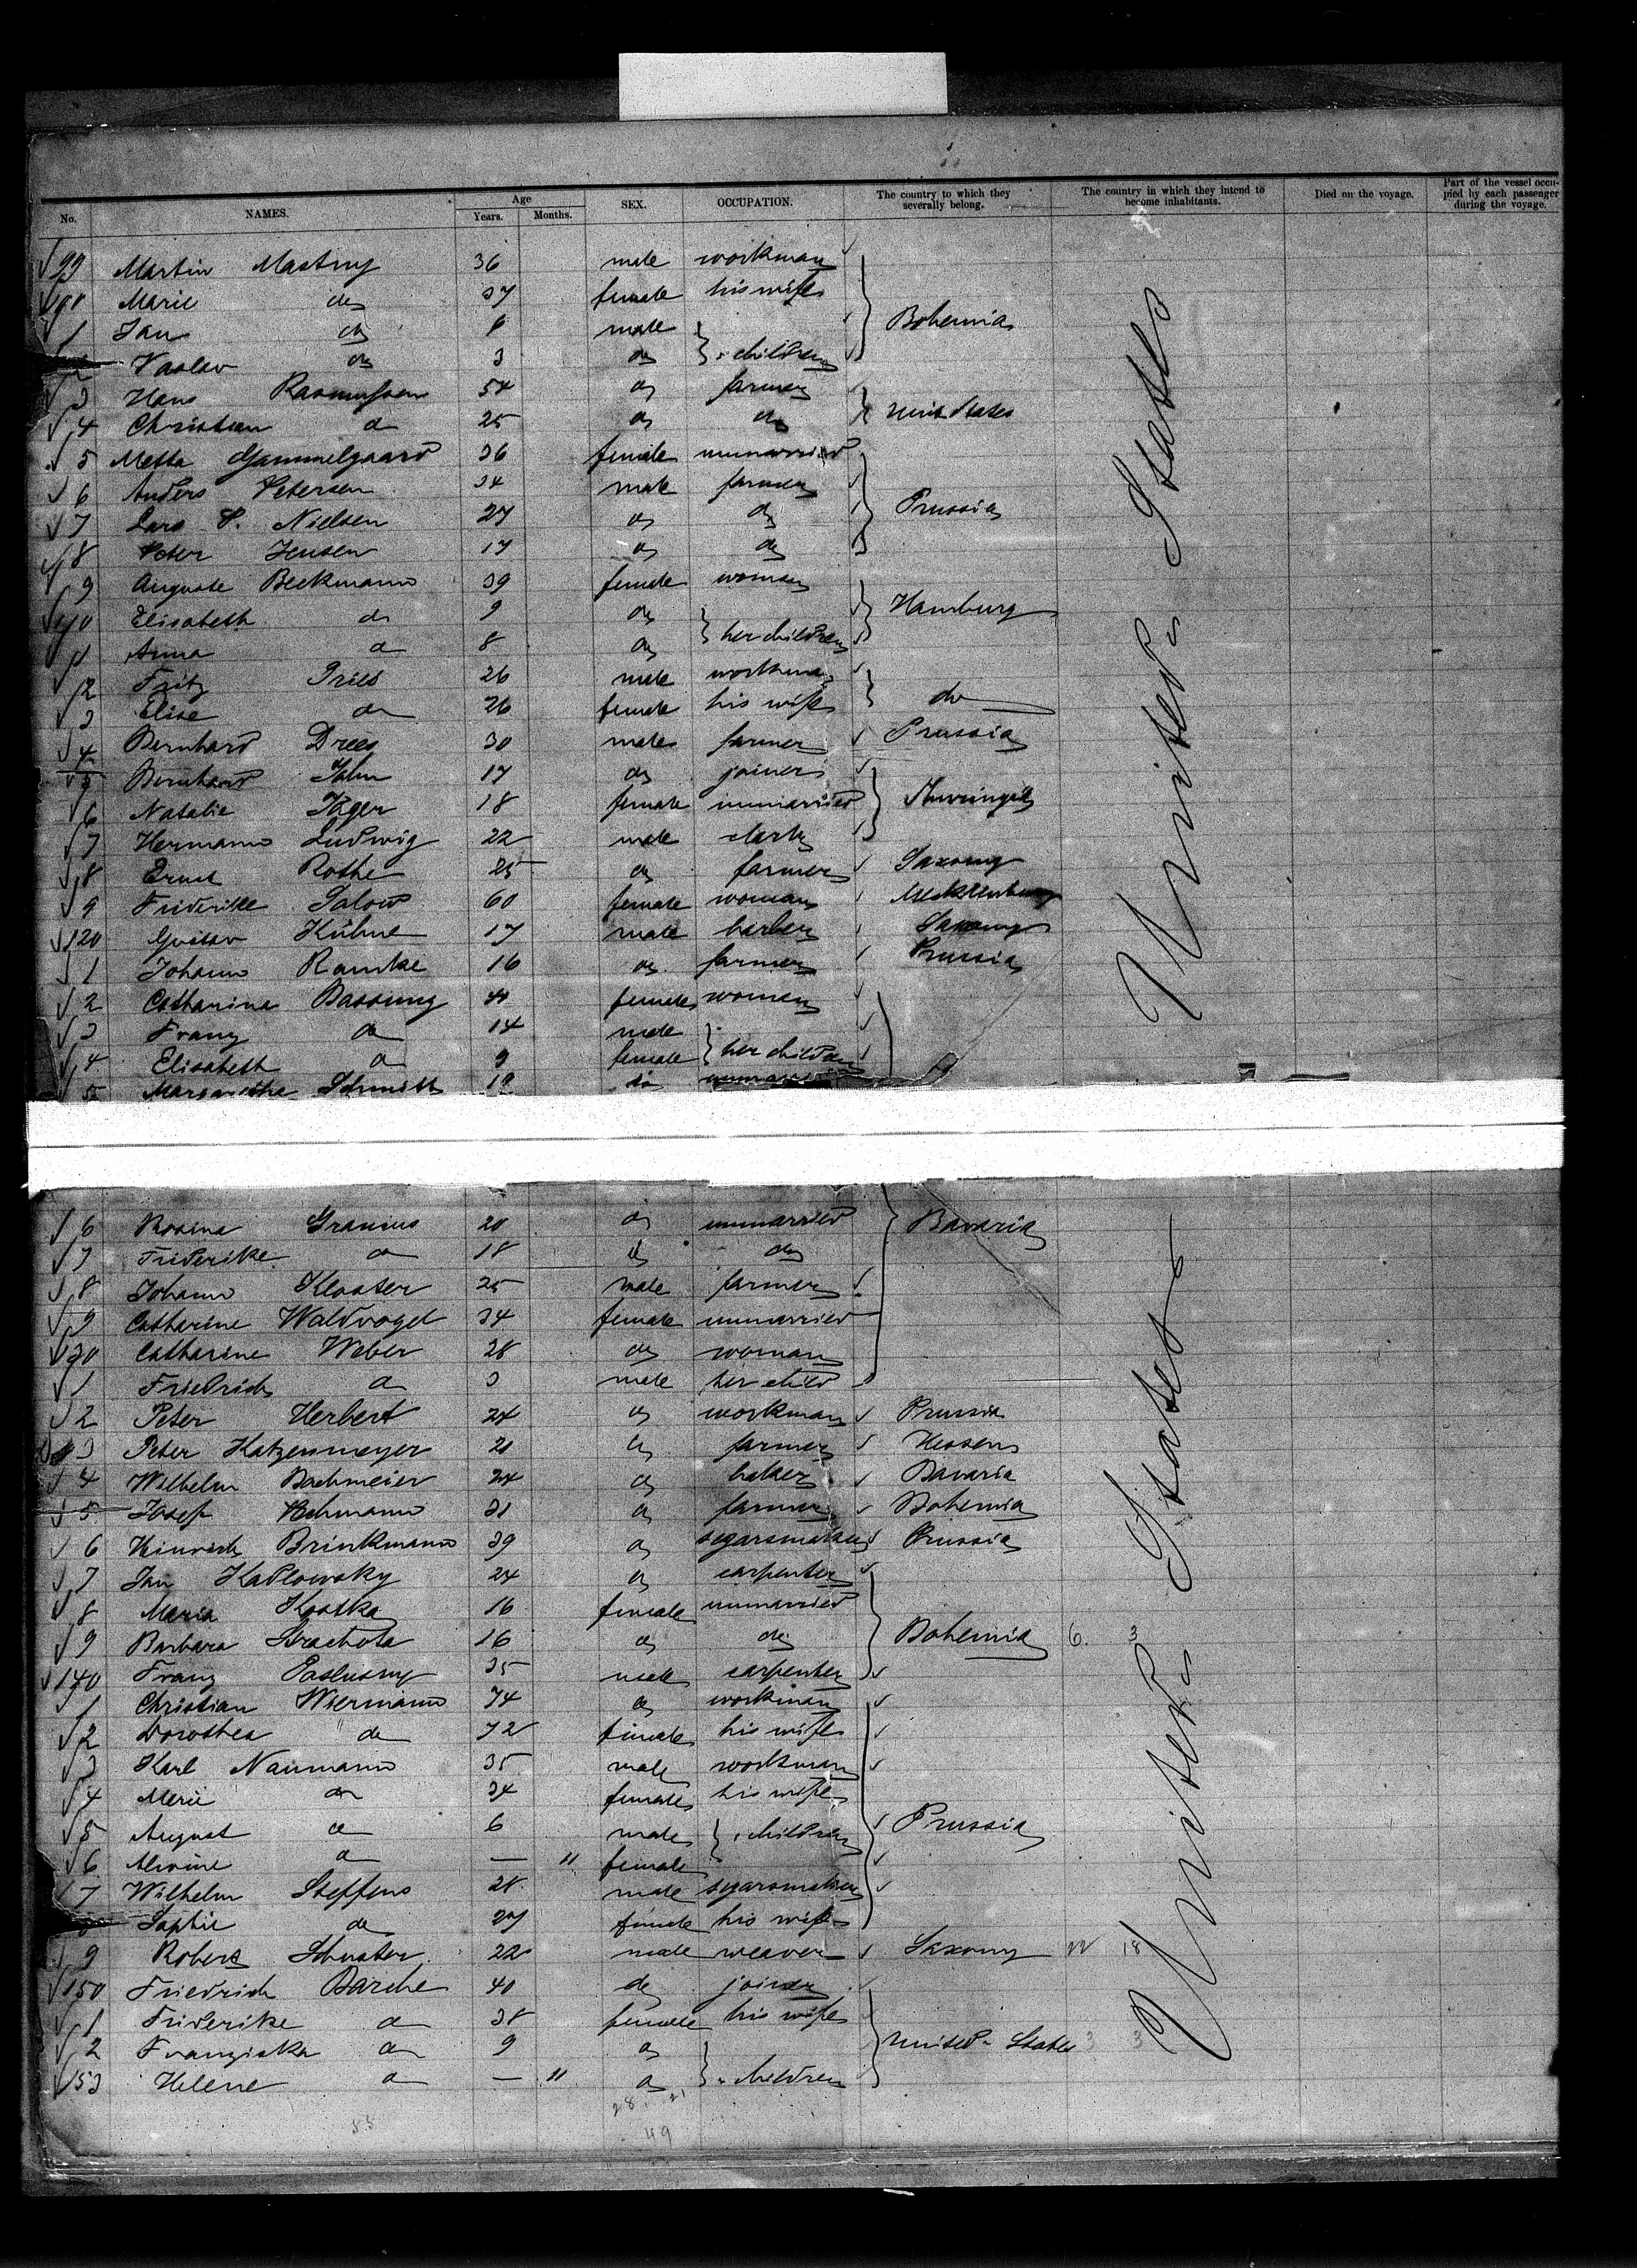 No. NAMES. Age Years. Months. SEX. OCCUPATION. The country to which they severally belong. The country in which they intend to become inhabitants. Died on the voyage. Part of the vessel occupied by each passenger during the voyage.
99 Martin Mastny 36 male workman
Marie do 37 female his wife
1 Jan do 6 male Bohemia
Vaslav do 3 do children
3 Hans Rasmussen 54 do farmer
4 Christian do 25 do do United States
5 Metta Gammelgaard 36 female unmarried
6 Anders Petersen 34 male farmer
7 Lars P. Nielsen 27 do do Prussia
8 Peter Jensen 17 do do
9 Auguste Beckmann 39 female woman
Elisabeth do 9 do Hamburg
Anna do 8 do her children
2 Fritz Pries 26 male workman
3 Elise do 26 female his wife do
4 Bernhard Drees 30 male farmer Prussia
5 Bernhard Jahn 17 do joiner
6 Natalie Jäger 18 female unmarried Thuringia
7 Hermann Ludwig 22 male clerk
8 Ernst Rothe 25 do farmer Saxony
9 Friderike Salow 60 female woman Mecklenburg
120 Gustav Kühne 17 male barber Saxony
1 Johann Ramke 16 do farmer Prussia
2 Catharina Bassing 44 female woman
3 Franz do 14 male
4 Elisabeth do 9 female her children
5 Margarethe Schmitt 19 do unmarried
6 Rosina Granius 20 do unmarried Bavaria
7 Friderike do 18 do do
8 Johann Kloster 25 male farmer
9 Catharine Waldvogel 34 female unmarried
130 Catharine Weber 28 do woman
1 Friedrich do 3 male her child
2 Peter Herbert 24 do workman Prussia
3 Peter Katzenmeyer 21 do farmer Hessen
4 Wilhelm Bachmeier 24 do baker Bavaria
5 Josef 31 do farmer Bohemia
6 Hinrich Brinkmann 39 do segarsmaker Prussia
7 Jan Kadlowsky 24 do carpenter
8 Maria Kostka 16 female unmarried
9 Barbara Strachota 16 do do Bohemia 6. 3
140 Franz 35 male carpenter
1 Christian Wiermann 74 do workman
2 Dorothea do 72 female his wife
3 Karl Naumann 35 male workman
4 Marie do 34 female his wife
5 August do 6 male children Prussia
6 Alwine do — 11 female
7 Wilhelm Steffens 28 male segarsmaker
8 Sophie do 27 female his wife
9 Robert Schuster 22 male weaver Saxony 18
150 Friedrich Barche 40 do joiner
1 Friderike do 38 female his wife
2 Franziska do 9 do United States 3 3
153 Helene do — 11 do children
United States
United States
28. 21
55 49